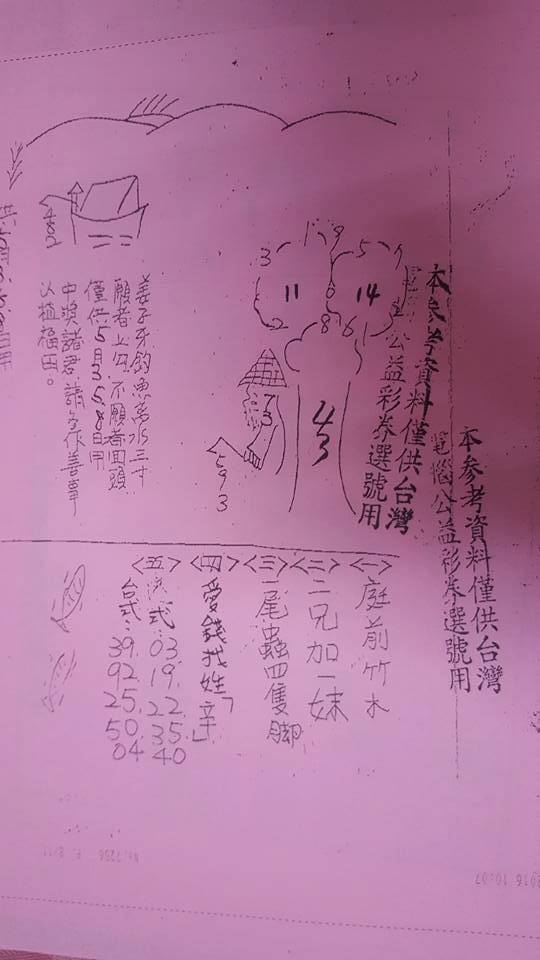 本參考資料僅供台灣
電腦公益彩券選號用
本參考資料僅供台灣
公益彩券選號用
3
1
9
5
11
14
2
8
6
1
43
73
593
482
姜子牙釣魚离水三寸
願者上勾不願者回頭
僅供5月3.5.8日用
中獎諸君請多作善事
以植福田。
<一>庭前竹木
<二>二兄加一妹
<三>一尾蟲四隻腳
<四>愛錢找姓「辛」
<五>六式:03.19.22.35.40
台式:39.92.25.50.04
No.7256 P. 2/11
2016 10:07